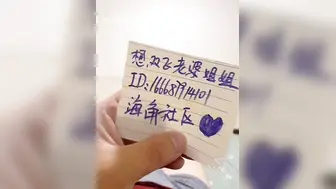 想双飞老婆姐姐
ID:16668914101
海角社区